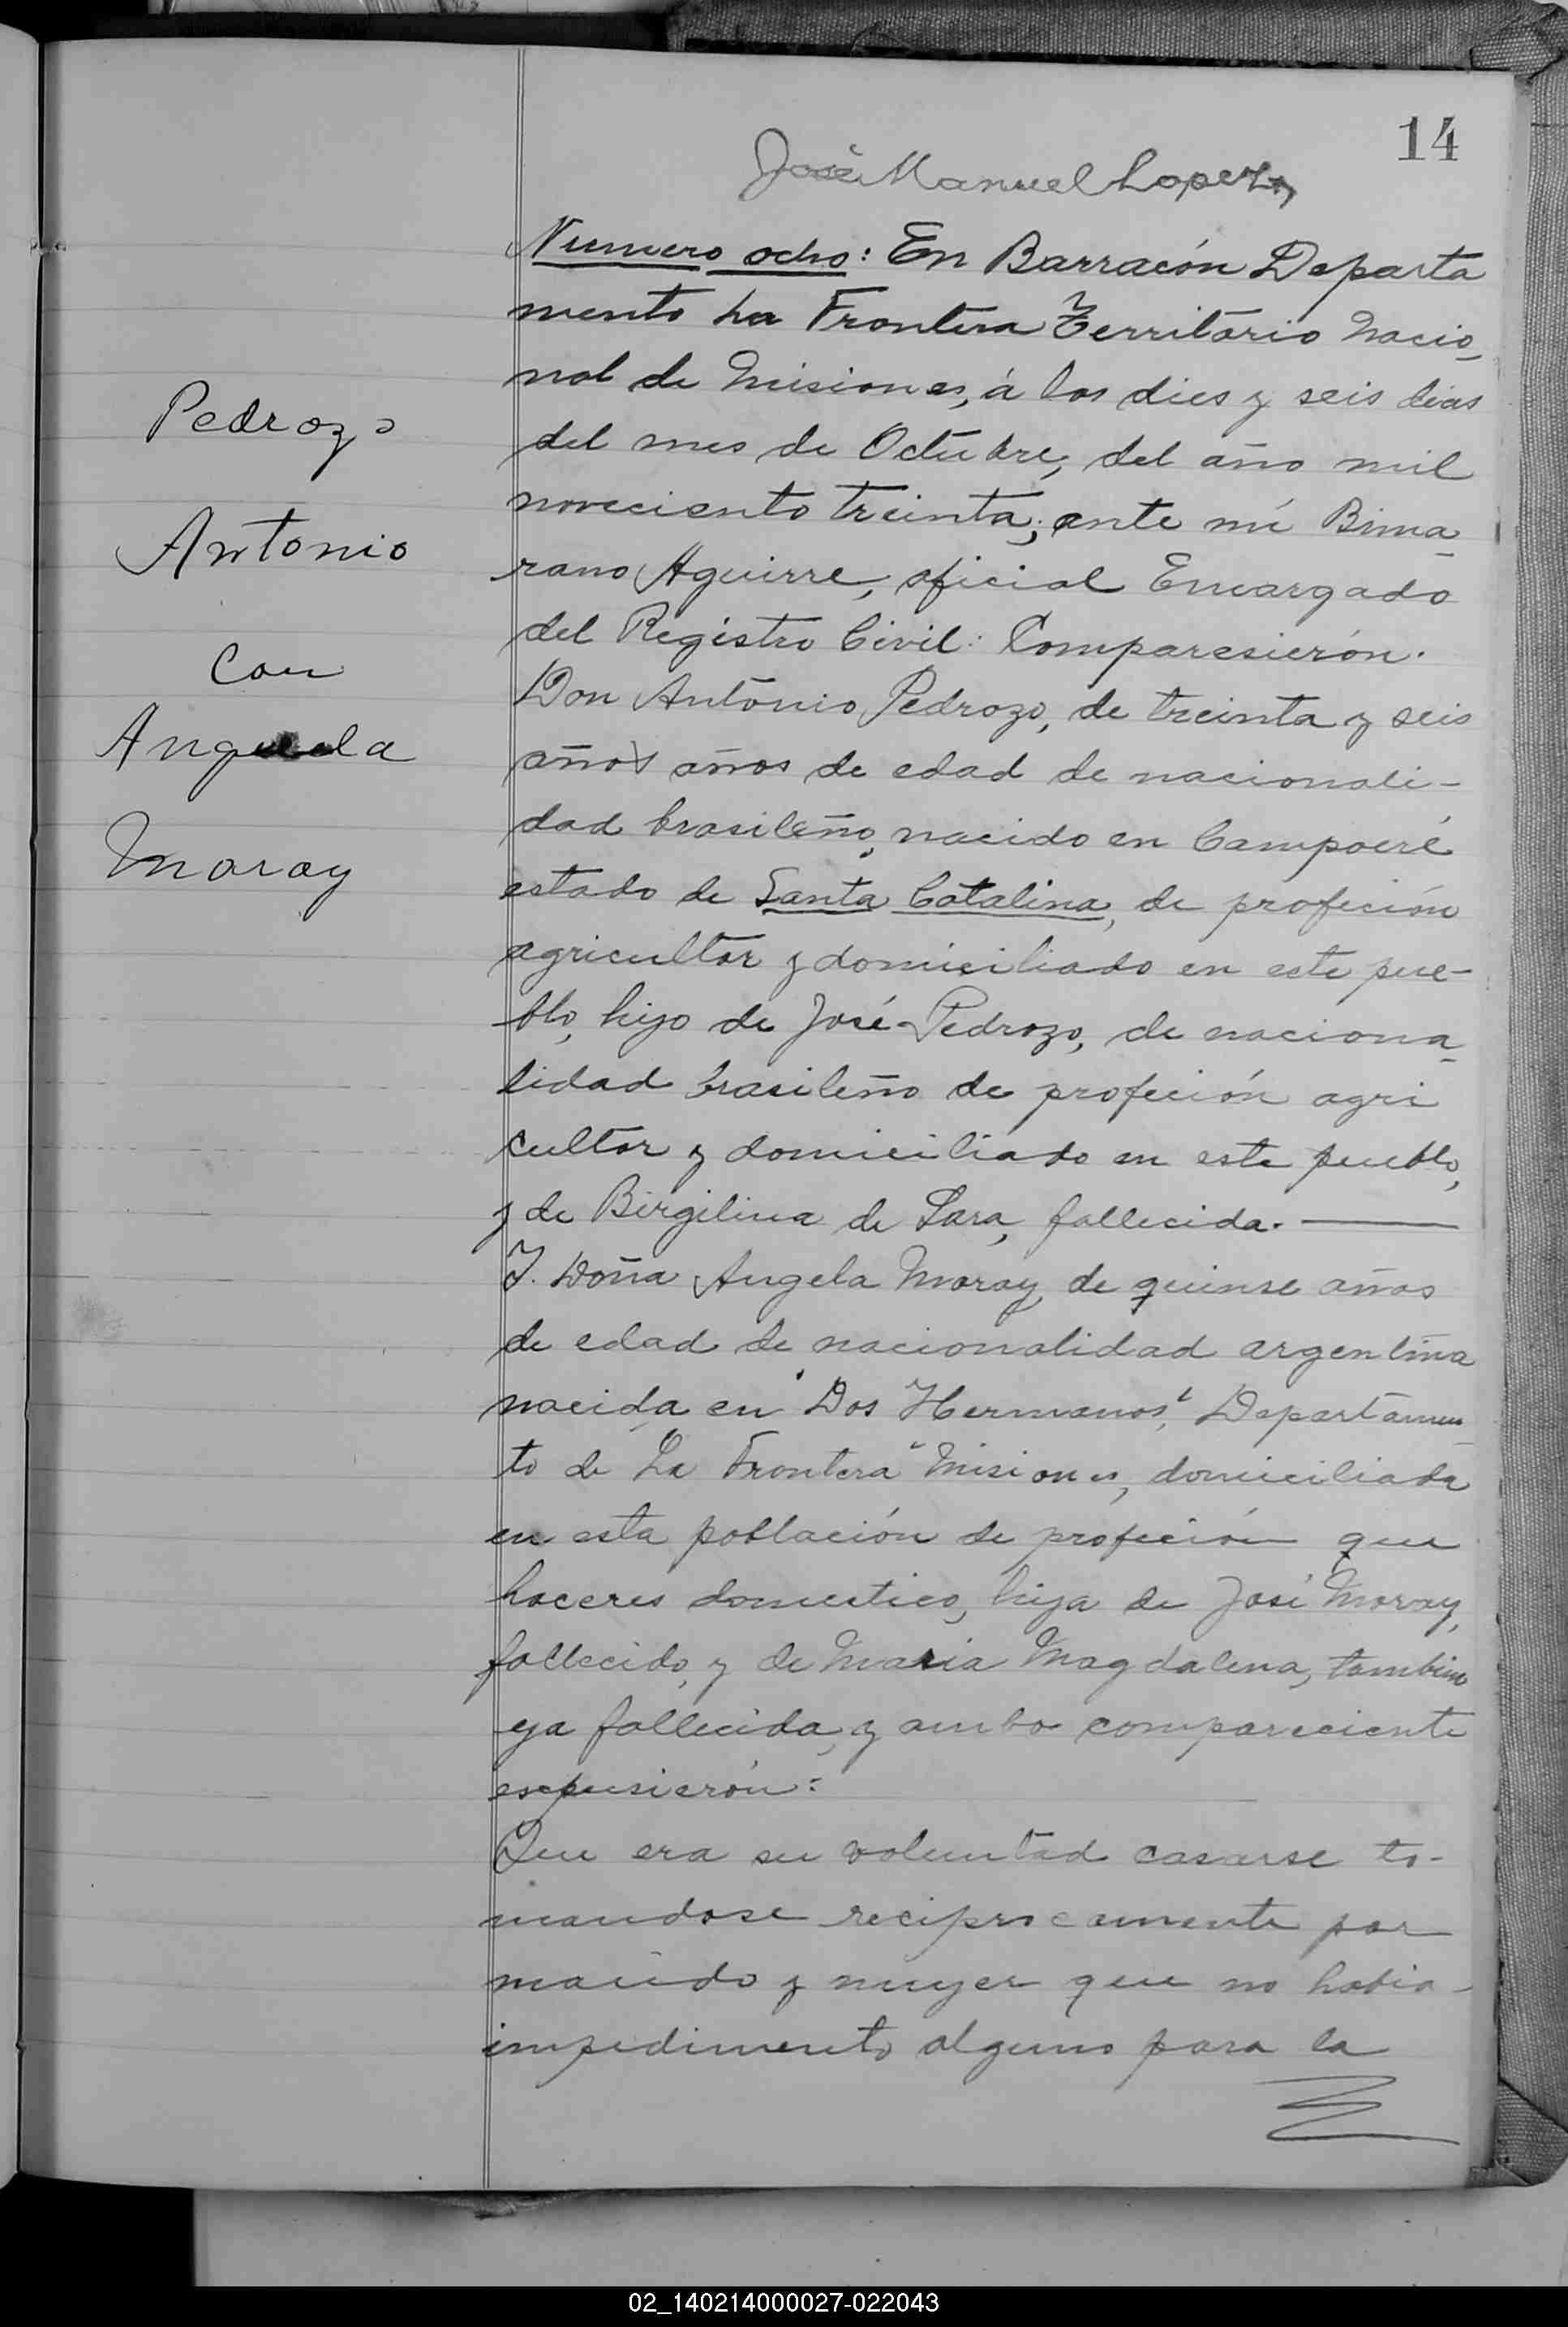 14
José Manuel Lopez
Numero ocho: En Barracón Departa
mento La Frontera Territorio Nacio-
nal de Misiones, á los dies y seis dias
del mes de Octubre, del año mil
noveciento treinta; ante mi Bima-
rano Aguirre, oficial Encargado
del Registro Civil: Comparesierón.
Don Antonio Pedrozo, de treinta y seis
años años de edad de nacionali-
dad brasileño, nacido en Campoeré
estado de Santa Catalina, de profeción
agricultor y domiciliado en este pue-
blo, hijo de José Pedrozo, de naciona-
lidad brasileño de profeción agri
cultor y domiciliado en este pueblo,
y de Birgilina de Lara, fallecida.
Y. Doña Angela Moray, de quinse años
de edad de nacionalidad argentina
nacida en "Dos Hermanos", Departamen-
to de La Frontera "Misiones, domiciliada
en esta población de profeción que
haceres domestico, hija de José Moray,
fallecido, y de Maria Magdalena, tambien
ya fallecida, y ambo compareciente
espusierón:
Que era su voluntad casarse to-
mandose reciprocamente por
marido y muyer que no habia
impedimento alguno para la
Pedrozo
Antonio
Con
Anguela
Moray
02_140214000027-022043